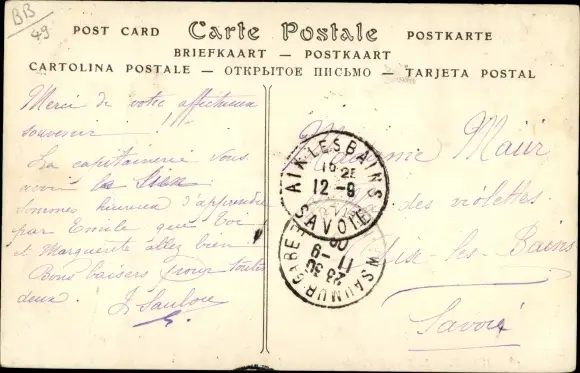 BB
49
POST CARD Carte Postale POSTKARTE
BRIEFKAART — POSTKAART
CARTOLINA POSTALE — ОТКРЫТОЕ ПИСЬМО — TARJETA POSTAL
Merci de votre affectueux
souvenir !!!
La capitainerie vous
sommes heureux d'apprendre
par Emile que toi
et Marguerite allez bien.
Bons baisers pour toutes
deux.
Madame
des violettes
Aix-les-Bains
Savoie
AIX-LES-BAINS
12 - 9
SAVOIE
SAUMUR
11 - 9